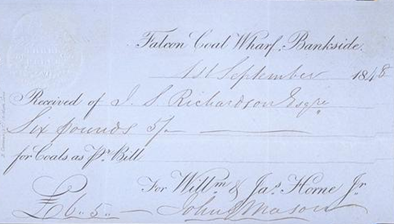 Falcon Coal Wharf, Bankside.
1st September 1848
Received of J. S. Richardson Esqre
Six pounds 5/-
for Coals as Pr. Bill
For Willm & Jas. Horne Jr
£6 . 5 . - John Mason